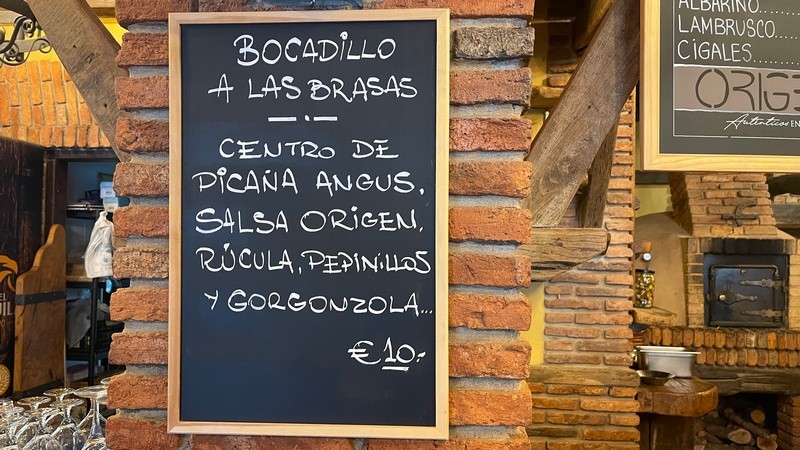 BOCADILLO
A LAS BRASAS
CENTRO DE
PICAÑA ANGUS,
SALSA ORIGEN,
RÚCULA, PEPINILLOS
Y GORGONZOLA...
€10.-
ALBARIÑO
LAMBRUSCO....
CIGALES.....
Auténticos EN